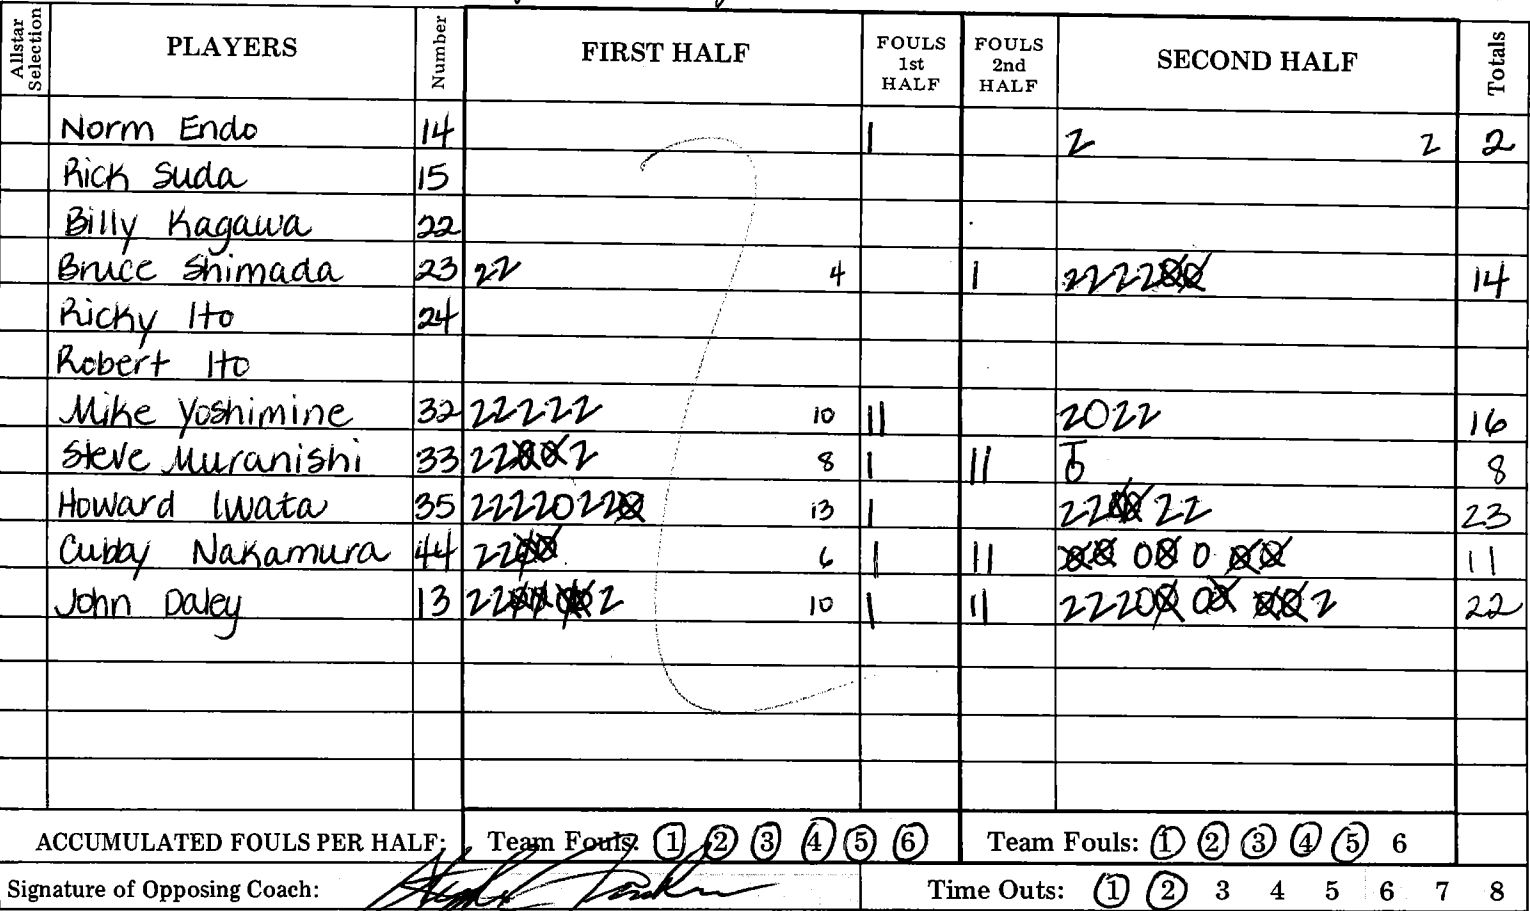 Allstar Selection PLAYERS Number FIRST HALF FOULS 1st HALF FOULS 2nd HALF SECOND HALF Totals
Norm Endo 14 1 2 2 2
Rick Suda 15
Billy Kagawa 22
Bruce Shimada 23 22 4 1 222200 14
Ricky Ito 24
Robert Ito
Mike Yoshimine 32 22222 10 11 2022 16
Steve Muranishi 33 22002 8 1 11 8
Howard Iwata 35 22220220 13 1 220022 23
Cubby Nakamura 44 2200 6 1 11 00 00 0 00 11
John Daley 13 2200002 10 1 11 22200 00 00 2 22
ACCUMULATED FOULS PER HALF: Team Fouls: 1 2 3 4 5 6 Team Fouls: 1 2 3 4 5 6
Signature of Opposing Coach: Time Outs: 1 2 3 4 5 6 7 8